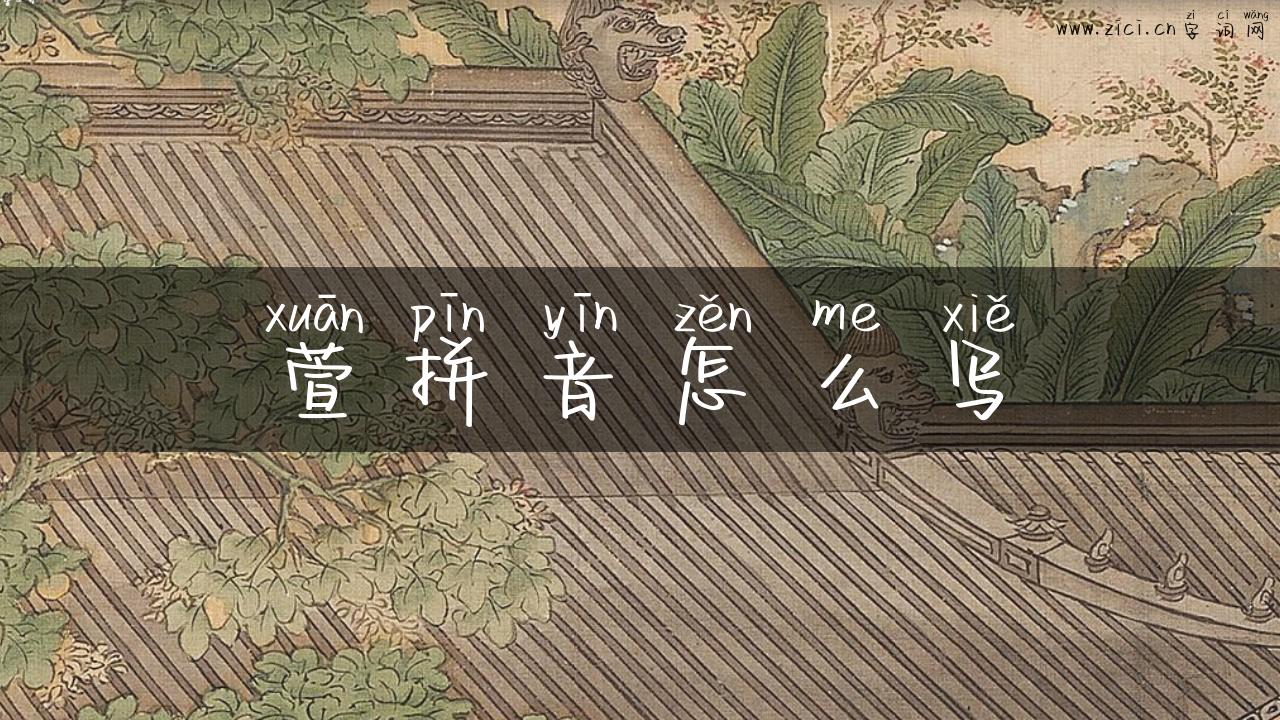 zì cí wǎng
www.zici.cn 字词网
xuān pīn yīn zěn me xiě
萱拼音怎么写